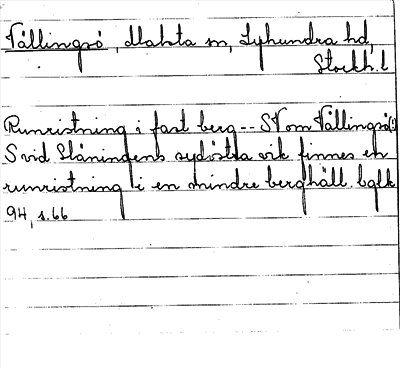 Vällingsö, Mahsta sn, Lyhundra hd,
Stockh. l
Runristning i fast berg -- SV om Vällingsö(:)
S vid Slåningens sydöstra vik finnes en
runristning i en mindre berghäll. bglk
94, s. 66